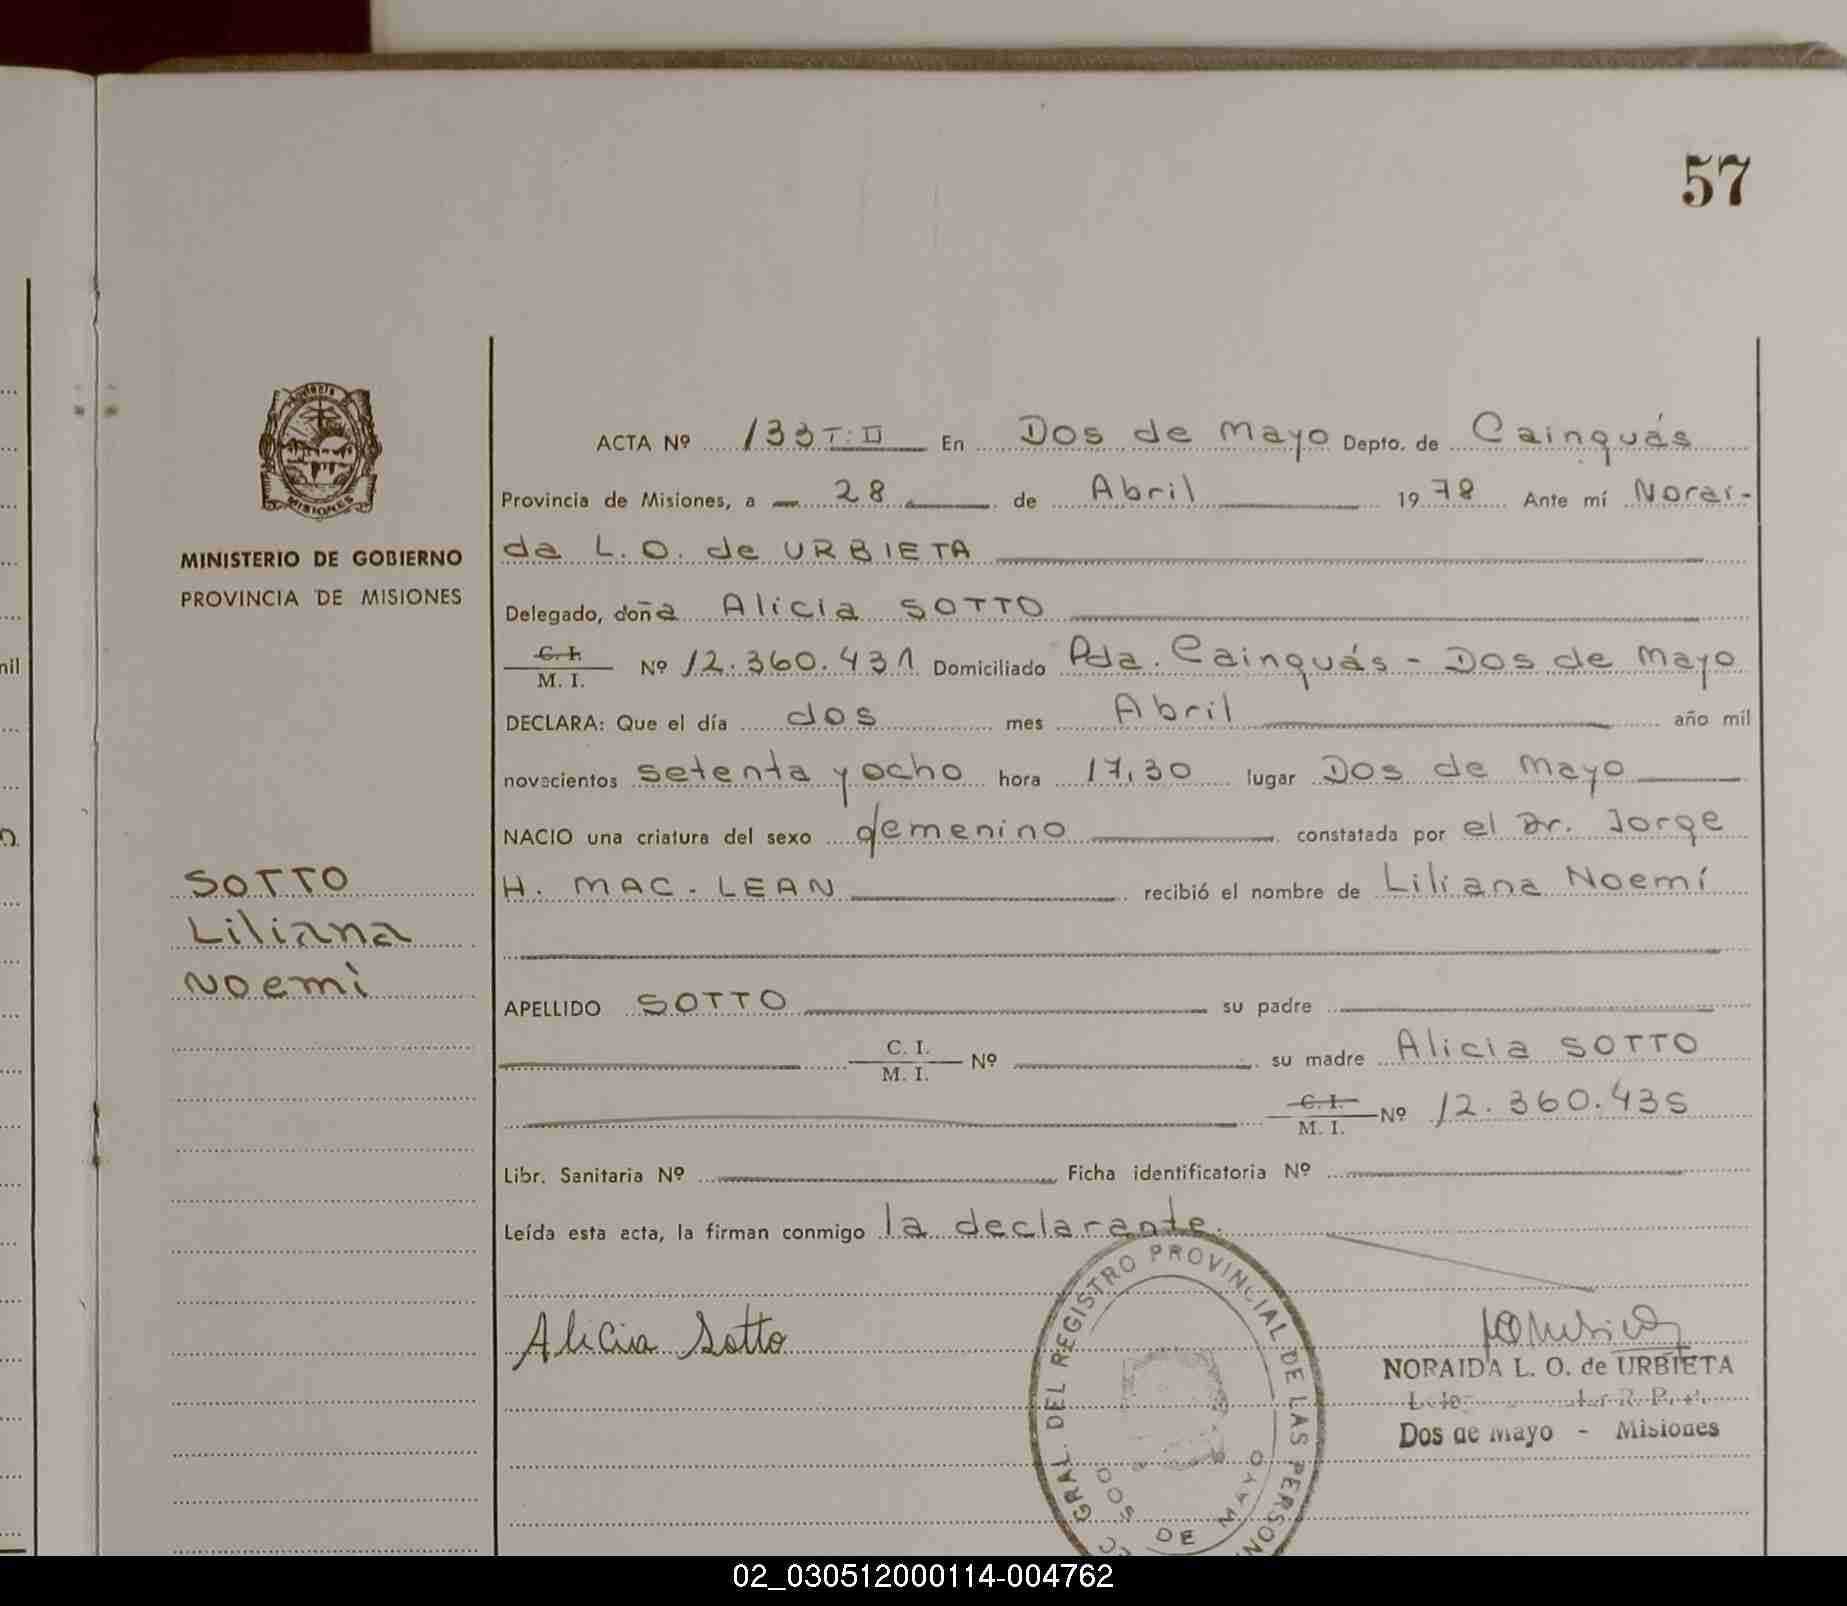 57
ACTA Nº 133 T: II En Dos de Mayo Depto. de Cainguás
Provincia de Misiones, a 28 de Abril 1978 Ante mí Norai-
da L. O. de URBIETA
MINISTERIO DE GOBIERNO
PROVINCIA DE MISIONES
MISIONES
Delegado, doña Alicia SOTTO
C. I. / M. I. Nº 12.360.431 Domiciliado Pda. Cainguás - Dos de Mayo
DECLARA: Que el día dos mes Abril año mil
novecientos setenta y ocho hora 17,30 lugar Dos de Mayo
NACIO una criatura del sexo femenino constatada por el Dr. Jorge
H. MAC-LEAN recibió el nombre de Liliana Noemí
SOTTO
Liliana
Noemí
APELLIDO SOTTO su padre
C. I. / M. I. Nº su madre Alicia SOTTO
C. I. / M. I. Nº 12.360.435
Libr. Sanitaria Nº Ficha identificatoria Nº
Leída esta acta, la firman conmigo la declarante.
Alicia Sotto
GRAL. DEL REGISTRO PROVINCIAL DE LAS PERSON
DOS DE MAYO
NORAIDA L. O. de URBIETA
Dos de Mayo - Misiones
mil
02_030512000114-004762